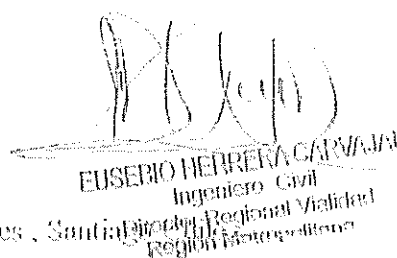 EUSEBIO HERRERA CARVAJAL
Ingeniero Civil
Director Regional Vialidad
Región Metropolitana